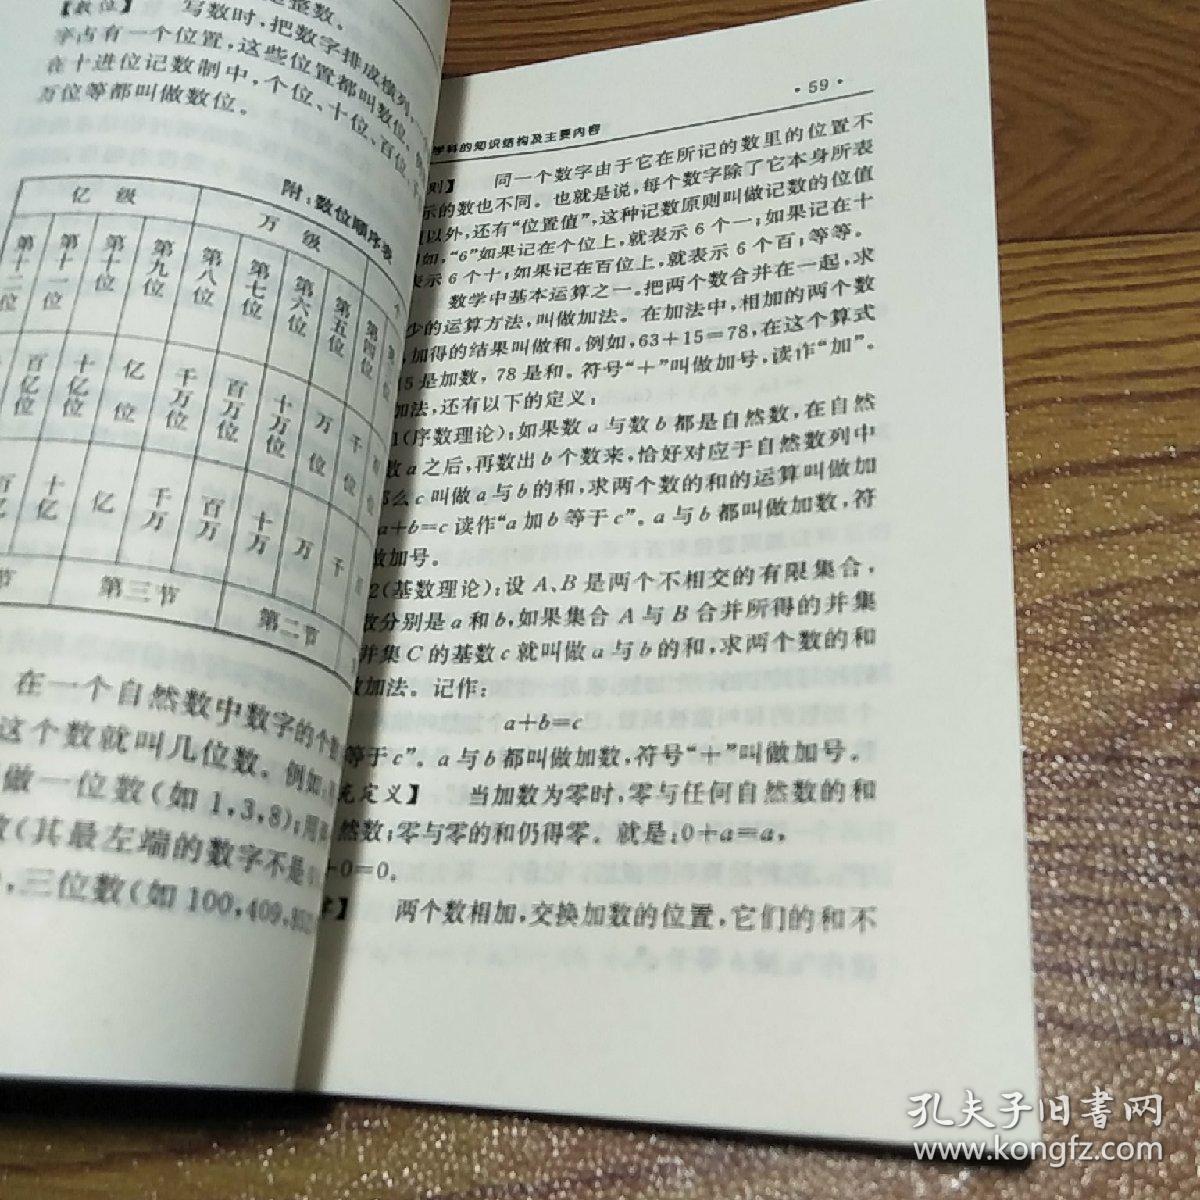 整数。
【数位】 写数时，把数字排成横列，一
字占有一个位置，这些位置都叫数位。
在十进位记数制中，个位、十位、百位、
万位等都叫做数位。
附：数位顺序表
亿 级 万 级
第十二位 第十一位 第十位 第九位 第八位 第七位 第六位 第五位 第四位
百亿位 十亿位 亿位 千万位 百万位 十万位 万位 千位
百亿 十亿 亿 千万 百万 十万 万 千
节 第三节 第二节
在一个自然数中数字的个
这个数就叫几位数。例如：
做一位数（如1，3，8）；用
数（其最左端的数字不是
，三位数（如100，409，
学科的知识结构及主要内容 ·59·
则】 同一个数字由于它在所记的数里的位置不
示的数也不同。也就是说，每个数字除了它本身所表
值以外，还有“位置值”，这种记数原则叫做记数的位值
如，“6”如果记在个位上，就表示6个一；如果记在十
表示6个十；如果记在百位上，就表示6个百；等等。
数学中基本运算之一。把两个数合并在一起，求
少的运算方法，叫做加法。在加法中，相加的两个数
，加得的结果叫做和。例如，63＋15＝78，在这个算式
15是加数，78是和。符号“＋”叫做加号，读作“加”。
加法，还有以下的定义：
1（序数理论）：如果数a与数b都是自然数，在自然
数a之后，再数出b个数来，恰好对应于自然数列中
那么c叫做a与b的和，求两个数的和的运算叫做加
a＋b＝c读作“a加b等于c”。a与b都叫做加数，符
做加号。
2（基数理论）：设A、B是两个不相交的有限集合，
数分别是a和b，如果集合A与B合并所得的并集
并集C的基数c就叫做a与b的和，求两个数的和
做加法。记作：
a＋b＝c
等于c”。a与b都叫做加数，符号“＋”叫做加号。
充定义】 当加数为零时，零与任何自然数的和
然数；零与零的和仍得零。就是：0＋a＝a，
＋0＝0。
】 两个数相加，交换加数的位置，它们的和不
孔夫子旧书网
www.kongfz.com